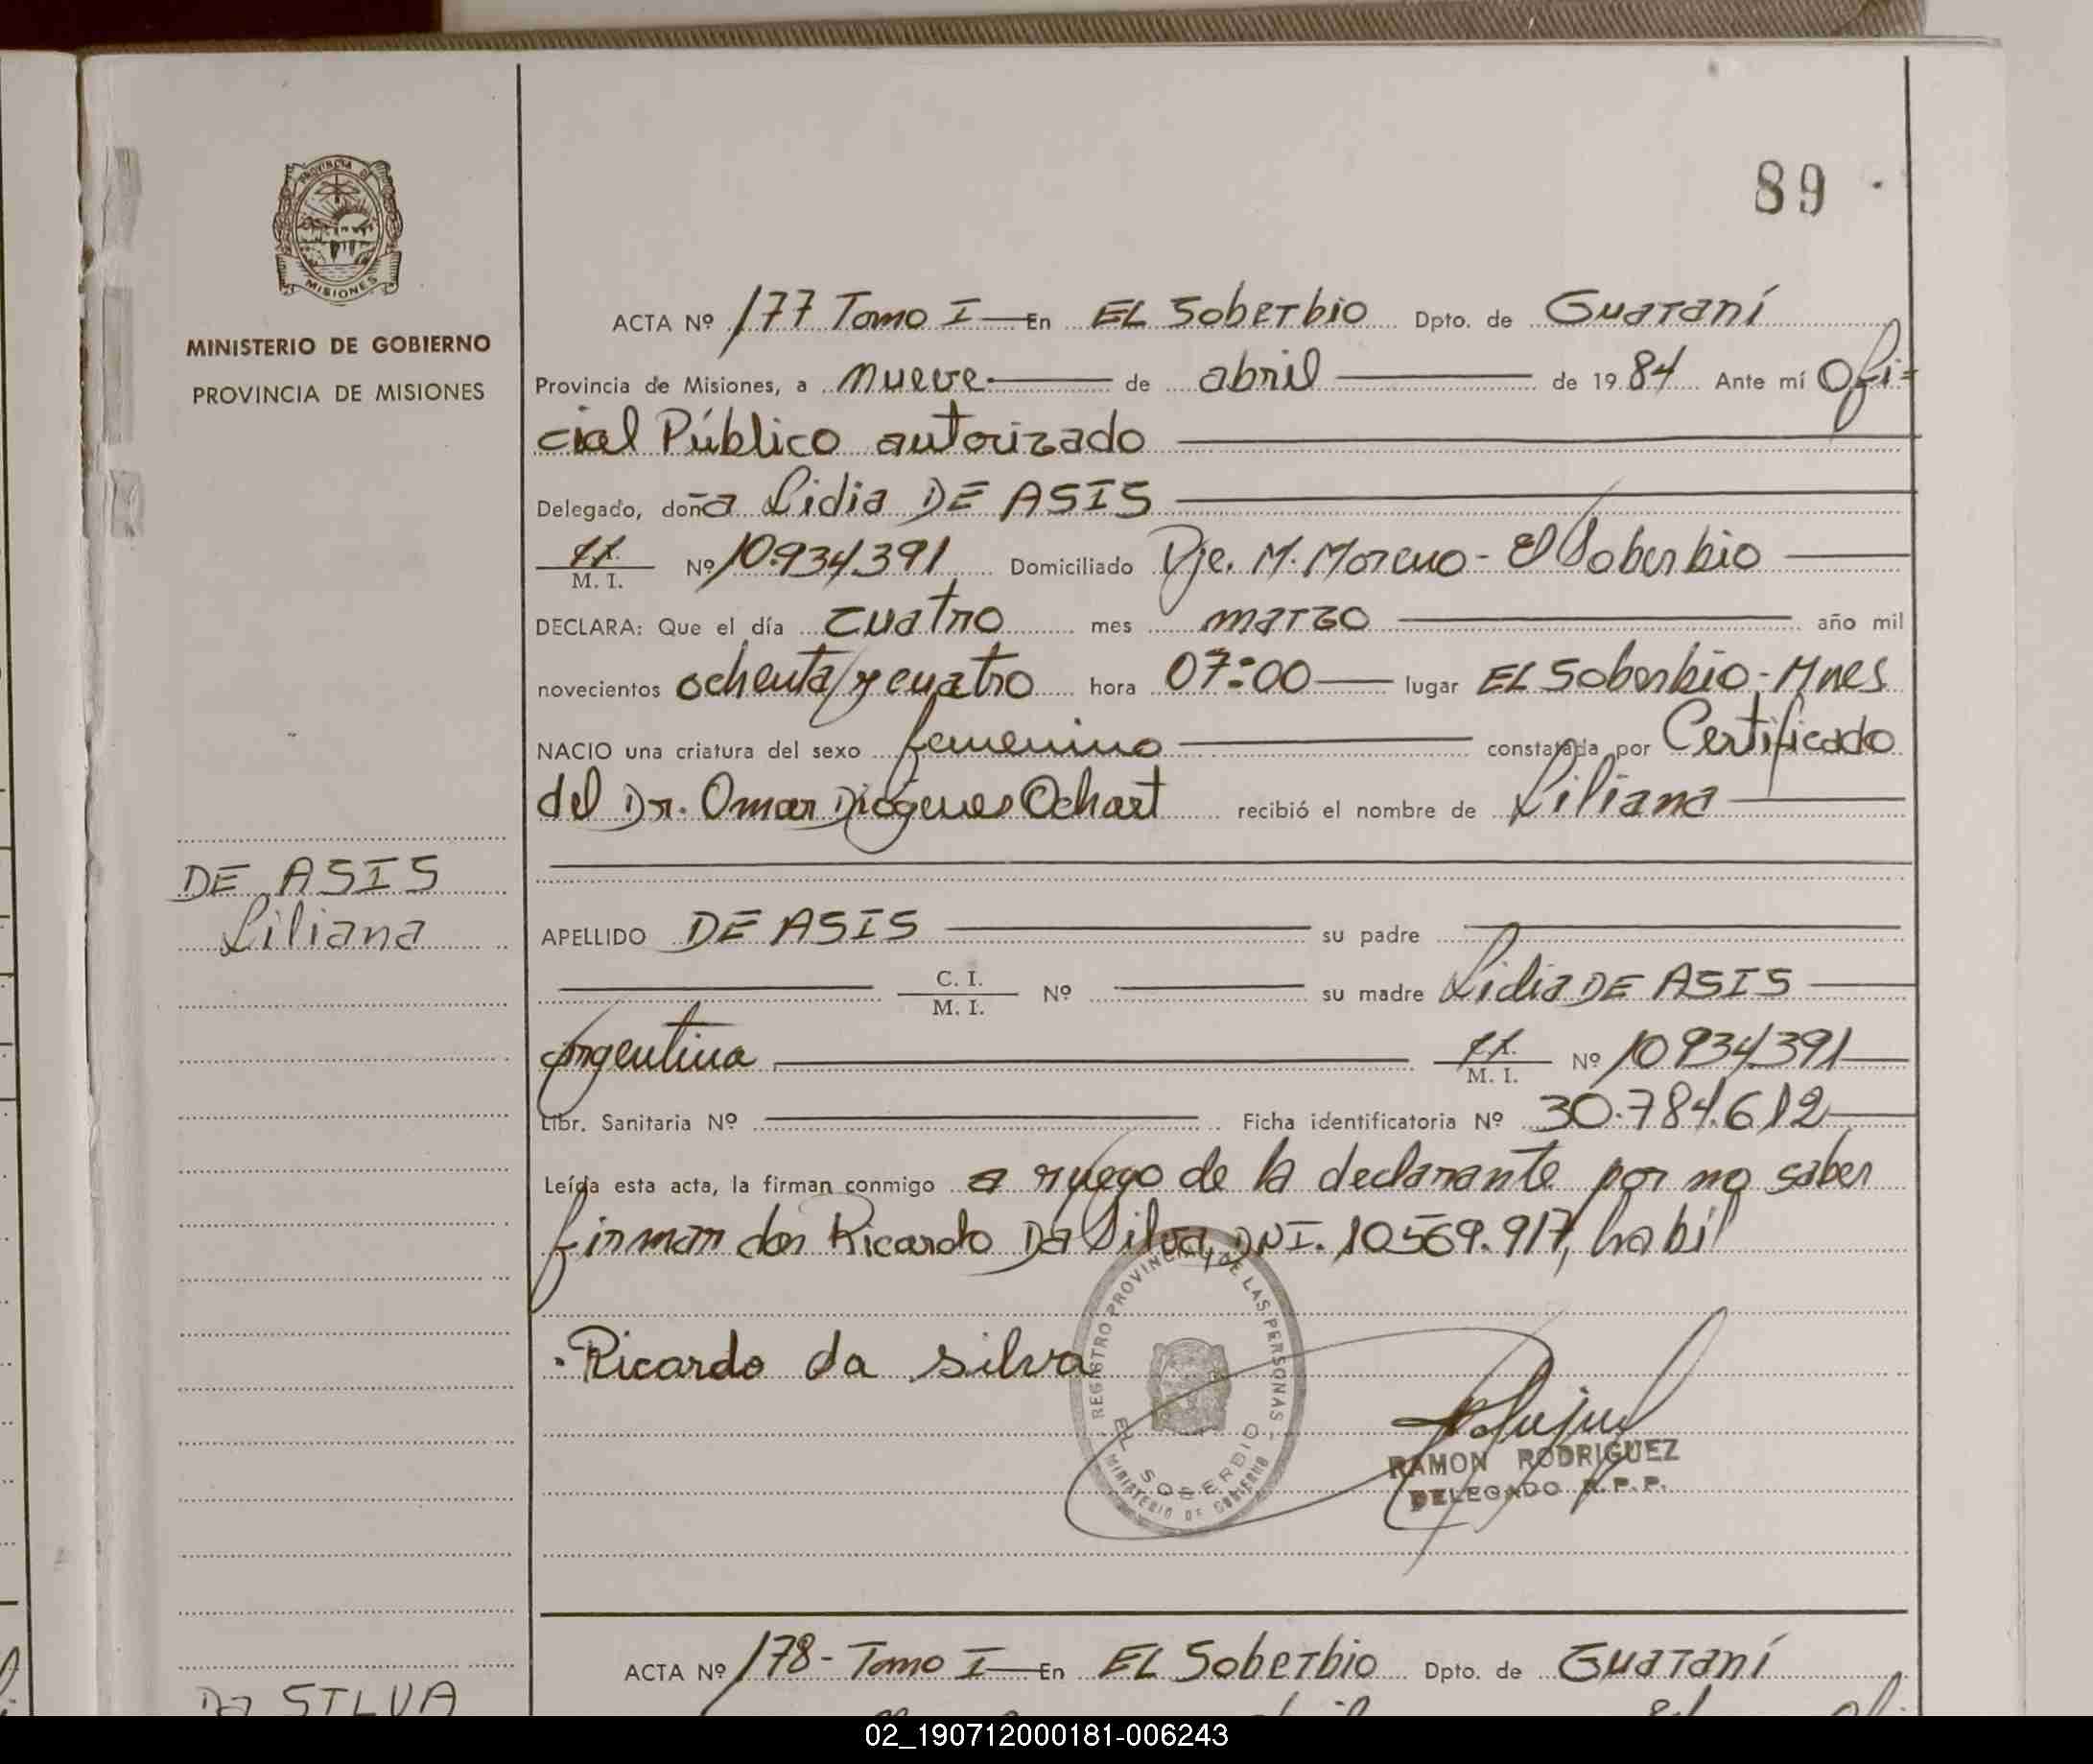 PROVINCIA DE
MISIONES
MINISTERIO DE GOBIERNO
PROVINCIA DE MISIONES
89
ACTA Nº 177 Tomo I En EL Soberbio Dpto. de Guaraní
Provincia de Misiones, a nueve de abril de 19 84 Ante mí Ofi=
cial Público autorizado
Delegado, doña Lidia DE ASIS
M. I. Nº 10.934.391 Domiciliado Pje. M. Moreno - El Soberbio
DECLARA: Que el día cuatro mes marzo año mil
novecientos ochenta y cuatro hora 07:00 lugar EL Soberbio - Mnes
NACIO una criatura del sexo femenino constatada por Certificado
del Dr. Omar Diógenes Ochart recibió el nombre de Liliana
DE ASIS
Liliana
APELLIDO DE ASIS su padre
C. I.
M. I. Nº su madre Lidia DE ASIS
Argentina M. I. Nº 10934391
Libr. Sanitaria Nº Ficha identificatoria Nº 30.784.612
Leída esta acta, la firman conmigo a ruego de la declarante por no saber
firmar don Ricardo Da Silva, DNI. 10569.917, habil
Ricardo da silva
REGISTRO PROVINCIAL DE LAS PERSONAS
EL SOBERBIO
MINISTERIO DE GOBIERNO
RAMON RODRIGUEZ
DELEGADO R.P.P.
ACTA Nº 178 - Tomo I En EL Soberbio Dpto. de Guaraní
Da SILVA
02_190712000181-006243